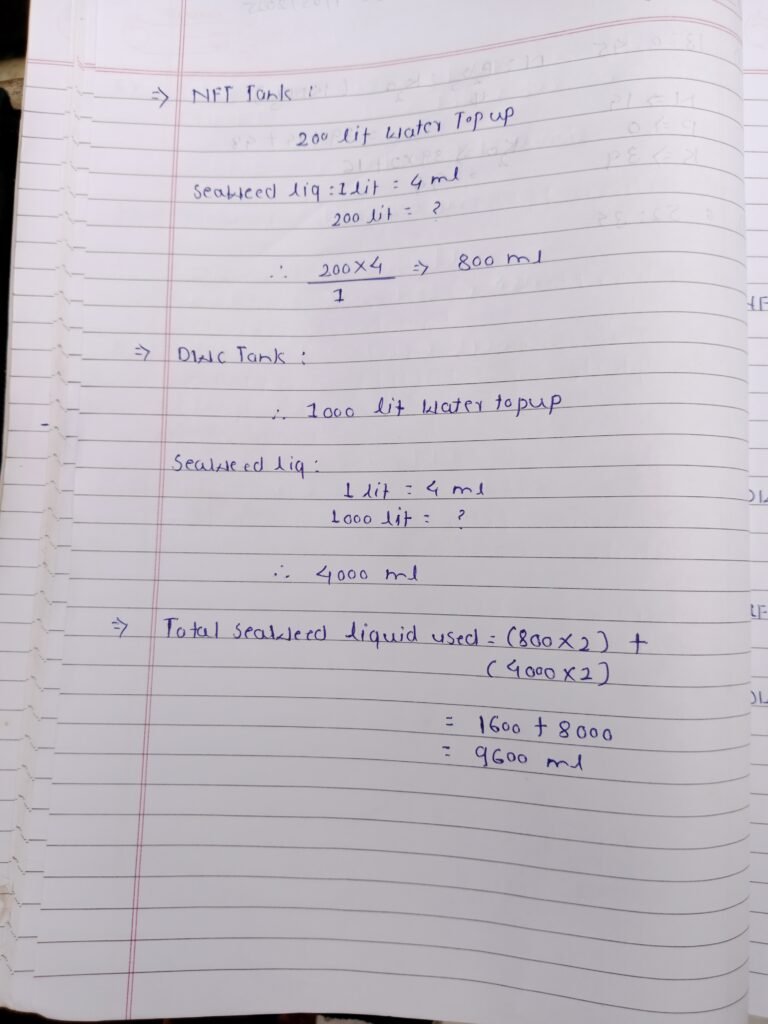 ⇒ NFT Tank :
200 lit Water Top up
Seaweed liq : 1 lit = 4 ml
200 lit = ?
∴ 200 X 4 ⇒ 800 ml
1
⇒ DWC Tank :
∴ 1000 lit Water topup
Seaweed liq :
1 lit = 4 ml
1000 lit = ?
∴ 4000 ml
⇒ Total seaweed liquid used = (800 X 2) +
(4000 X 2)
= 1600 + 8000
= 9600 ml